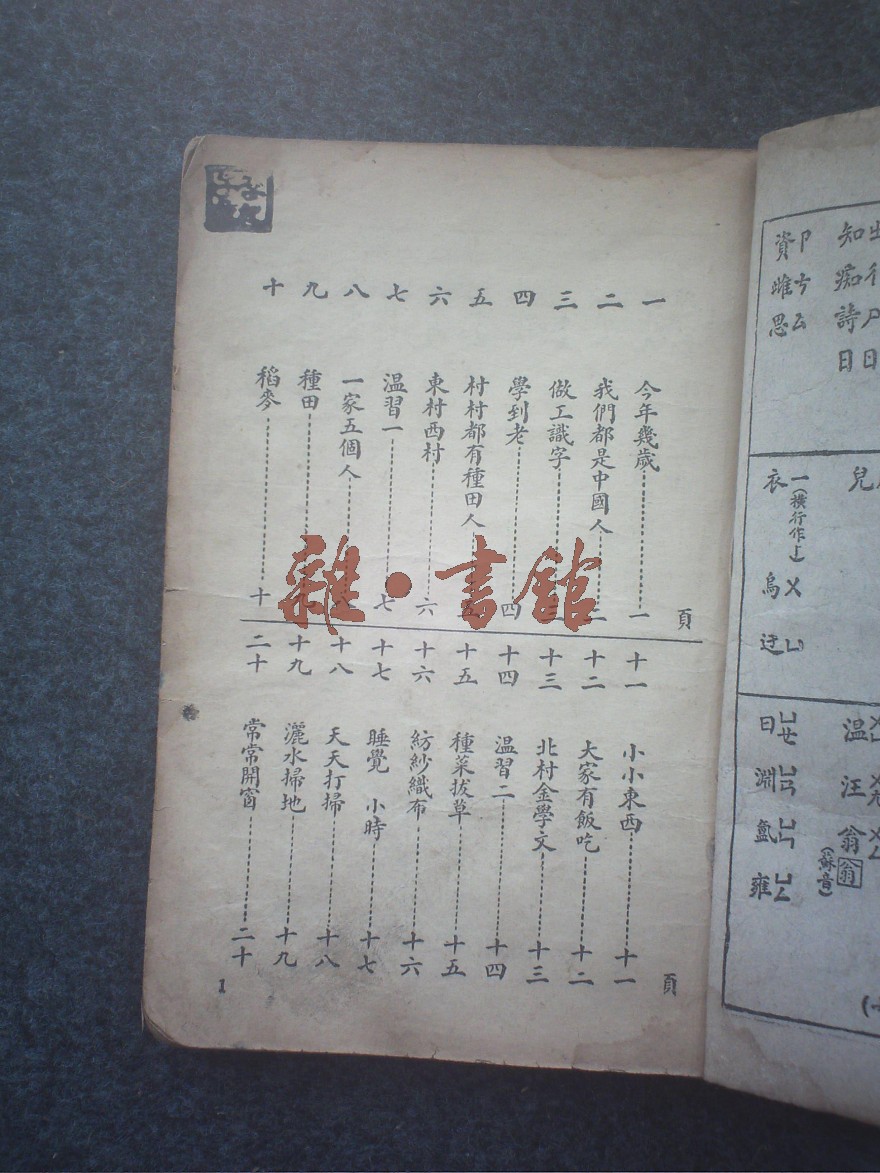 頁
一 今年幾歲 一
二 我們都是中國人 二
三 做工識字
四 學到老 四
五 村村都有種田人 五
六 東村西村 六
七 温習一 七
八 一家五個人
九 種田 九
十 稻麥 十
頁
十一 小小東西 十一
十二 大家有飯吃 十二
十三 北村金學文 十三
十四 温習二 十四
十五 種菜拔草 十五
十六 紡紗織布 十六
十七 睡覺 小時 十七
十八 天天打掃 十八
十九 灑水掃地 十九
二十 常常開窗 二十
1
雜·書館
知痴詩日
資雌思
ㄗㄘㄙ
兒
衣 一(橫行作丨)
烏 ㄨ
迂 ㄩ
温汪翁
翁(蘇音)
曰 ㄩㄝ
淵 ㄩㄢ
氳 ㄩㄣ
雍 ㄩㄥ